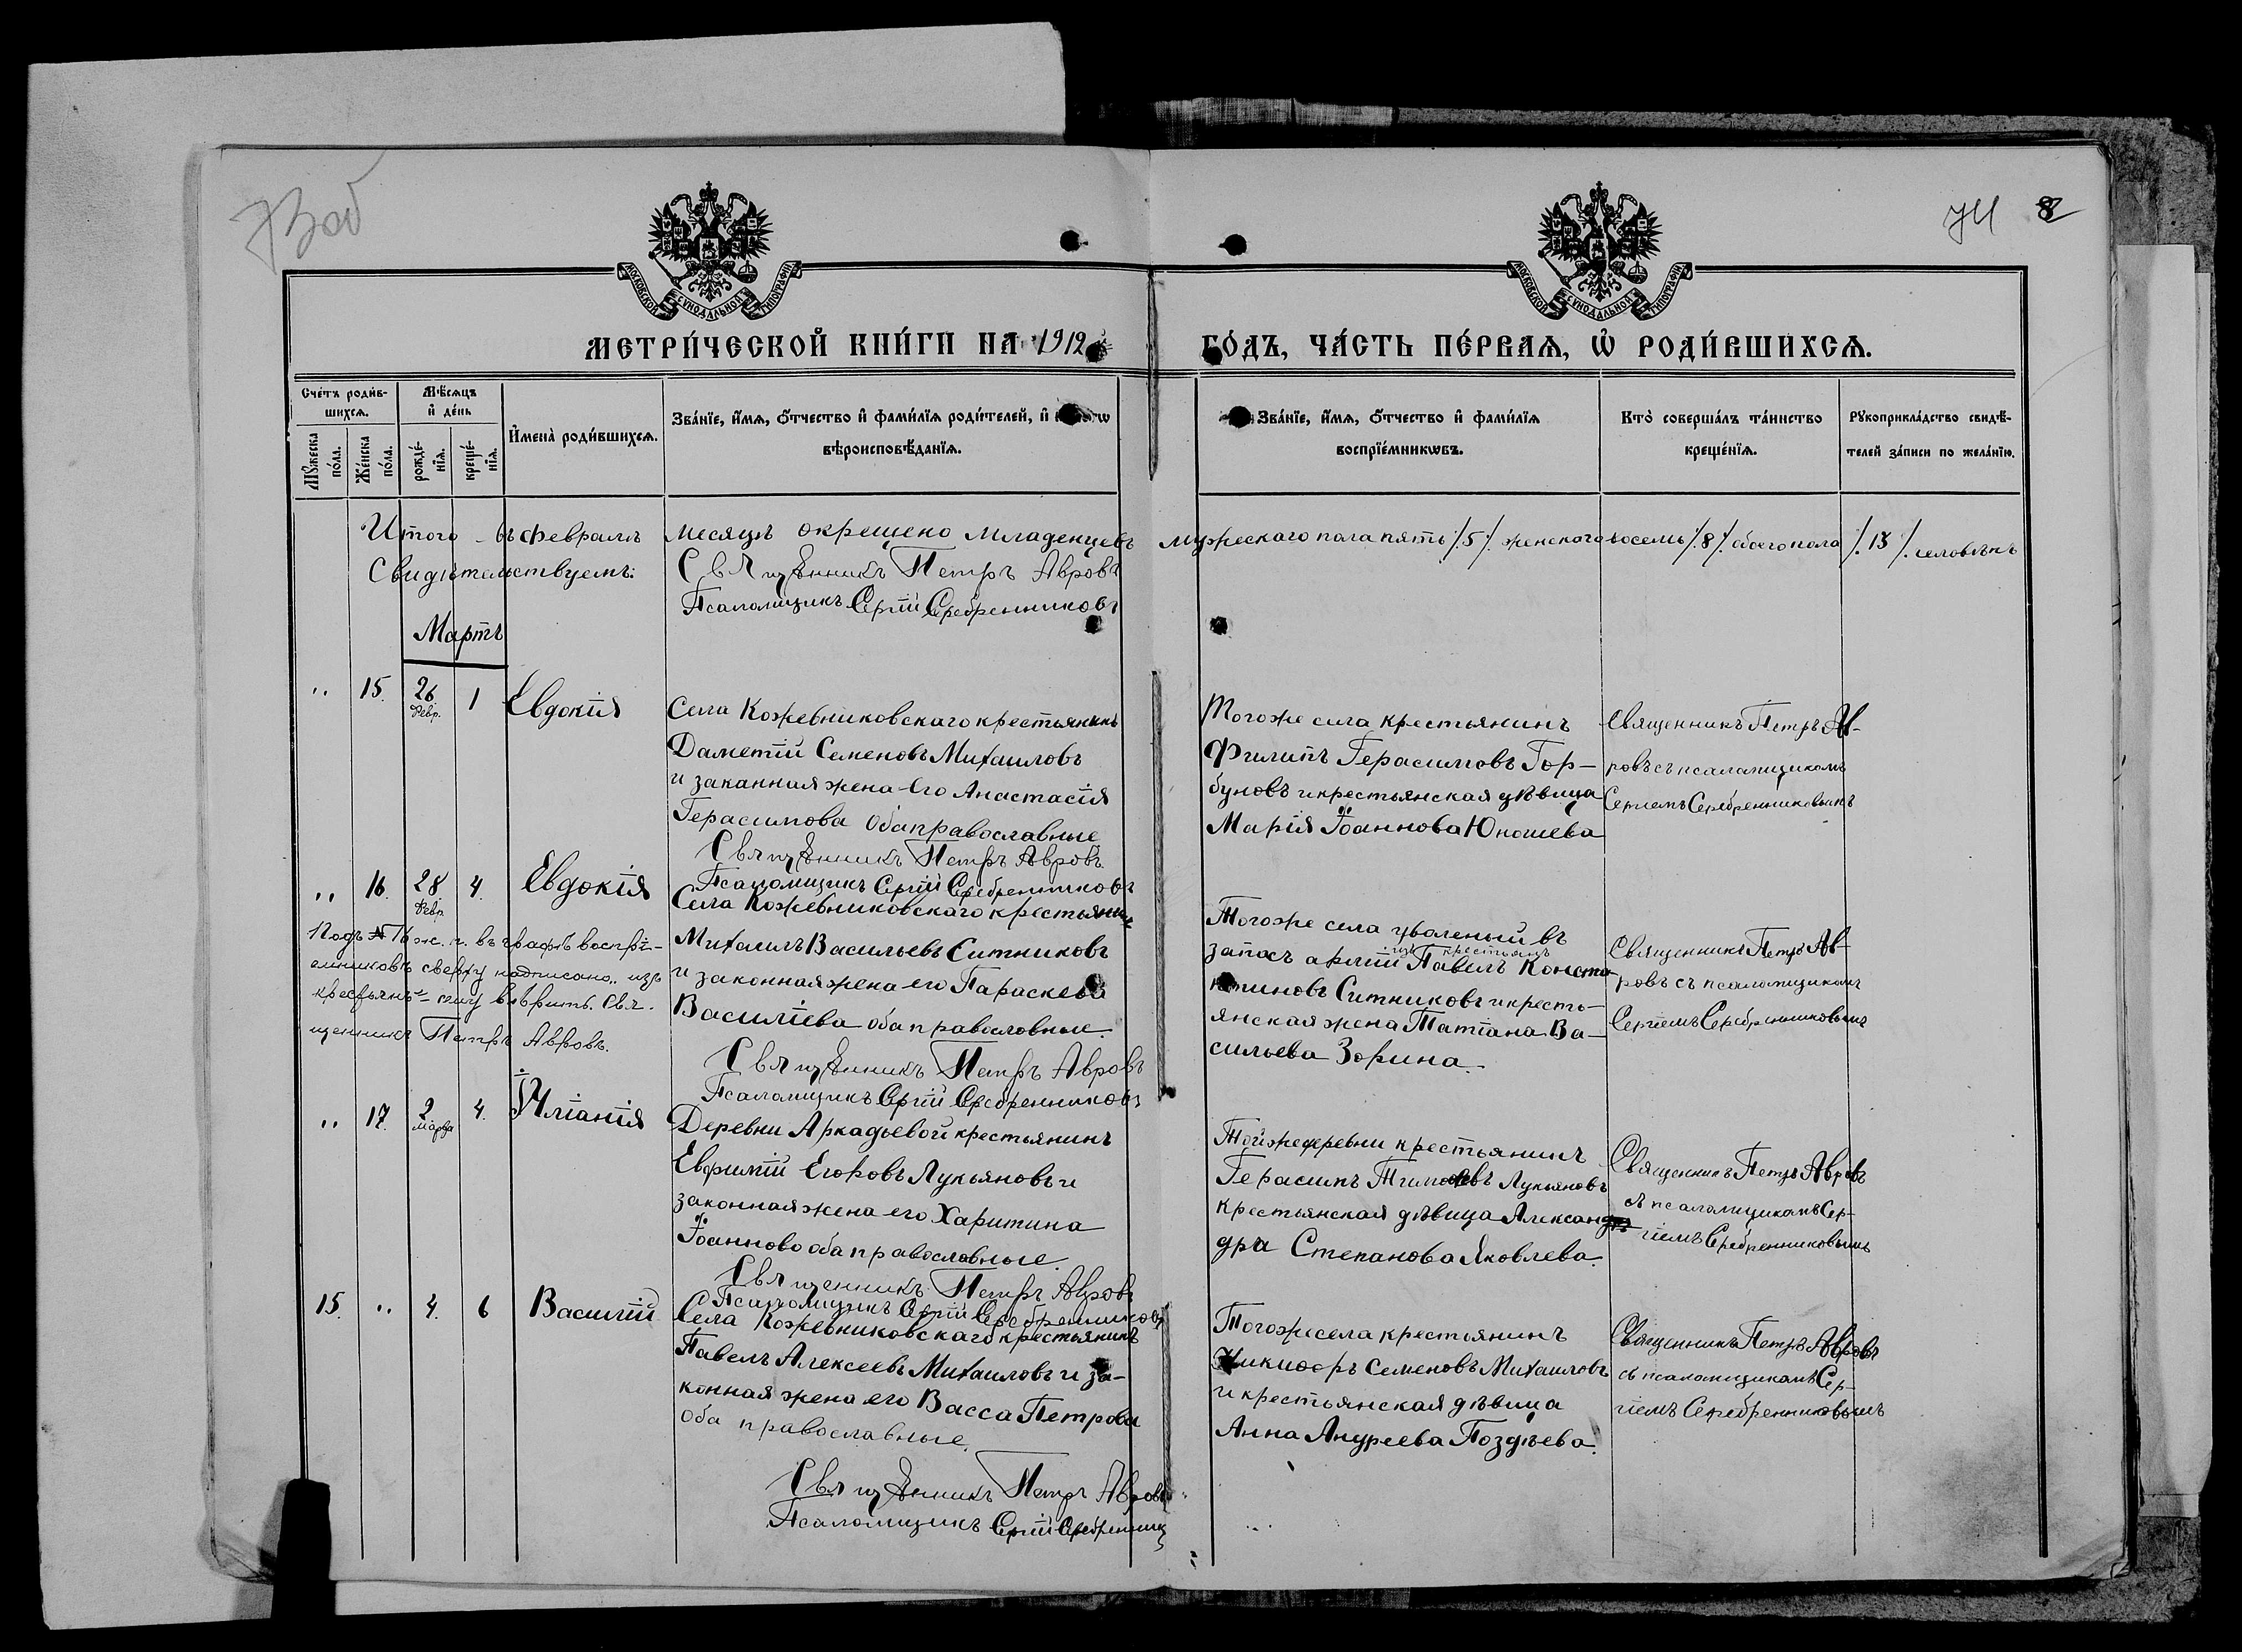 73об
74 8
МОСКОВСКОЙ СѴНОДАЛЬНОЙ ТИПОГРАФІИ
МОСКОВСКОЙ СѴНОДАЛЬНОЙ ТИПОГРАФІИ
МЕТРИ́ЧЕСКОЙ КНИ́ГИ НА 1912 ГО́ДЪ, ЧА́СТЬ ПЕ́РВАѦ, Ѡ҆ РОДИ́ВШИХСѦ.
Сче́тъ роди́в-
шихсѧ.
Мѣ́сѧцъ
и҆ де́нь
Мꙋ́жеска
по́ла.
Же́нска
по́ла.
рожде́-
нїѧ.
креще́-
нїѧ.
И҆мена̀ роди́вшихсѧ.
Зва́нїе, и҆́мѧ, ѻ҆́тчество и҆ фами́лїѧ роди́телей, и҆
вѣроисповѣ́данїѧ.
Зва́нїе, и҆́мѧ, ѻ҆́тчество и҆ фами́лїѧ
воспрїе́мникѡвъ.
Кто̀ соверша́лъ та́инство
креще́нїѧ.
Рꙋкоприкла́дство свидѣ́-
телей за́писи по жела́нїю.
Итого въ Февралѣ месяцѣ окрещено младенцевъ мужескаго пола пять /.5/. женскаго восемь /.8/. обоего пола /.13/. человѣкъ
Свидѣтельствуемъ: Священникъ Петръ Авровъ
Псаломщикъ Сергій Серебренниковъ
Мартъ
" 15. 26 Февр. 1 Евдокія
Села Кожевниковскаго крестьянинъ
Даметій Семеновъ Михаиловъ
и заканная жена его Анастасія
Герасимова оба православные
Священникъ Петръ Авровъ
Псаломщикъ Сергій Серебренниковъ
Тогоже села крестьянинъ
Филипъ Герасимовъ Гор-
буновъ и крестьянская дѣвица
Марія Іоаннова Юношева
Священникъ Петръ Ав-
ровъ съ псаломщикомъ
Сергіемъ Серебренниковымъ
" 16. 28 Февр. 4. Евдокія
Села Кожевниковскаго крестьянинъ
Михаилъ Васильевъ Ситниковъ
и законная жена его Параскева
Василіева оба православные.
Священникъ Петръ Авровъ
Псаломщикъ Сергій Серебренниковъ
Подъ № 16 ж. п. въ графѣ воспрі-
емниковъ сверху надписано „изъ
крестьянъ" – сему вѣрить. Свя-
щенникъ Петръ Авровъ.
Тогоже села уволеный въ
запасъ арміи изъ крестьянъ Павелъ Конста-
нтиновъ Ситниковъ и кресть-
янская жена Татіана Ва-
сильева Зорина.
Священникъ Петръ Ав-
ровъ съ псаломщикомъ
Сергіемъ Серебренниковымъ
" 17. 2 марта 4. Іуліанія
Деревни Аркадьевой крестьянинъ
Евфимій Егоровъ Лукьяновъ и
законная жена его Харитина
Іоанново оба православные.
Священникъ Петръ Авровъ
Псаломщикъ Сергій Серебренниковъ
Тойже деревни крестьянинъ
Герасимъ Тимофевъ Лукьяновъ
крестьянская дѣвица Александ
дра Степанова Яковлева.
Священникъ Петръ Авровъ
съ псаломщикомъ Сер-
гіемъ Серебренниковымъ
15. " 4. 6 Василій
Села Кожевниковскаго крестьянинъ
Павелъ Алексеевъ Михаиловъ и за-
конная жена его Васса Петрова
оба православные.
Священникъ Петръ Авровъ
Псаломщикъ Сергій Серебренник
Тогоже села крестьянинъ
Никифоръ Семеновъ Михаиловъ
и крестьянская дѣвица
Анна Андреева Поздѣева.
Священникъ Петръ Авровъ
съ псаломщикомъ Сер-
гіемъ Серебренниковымъ